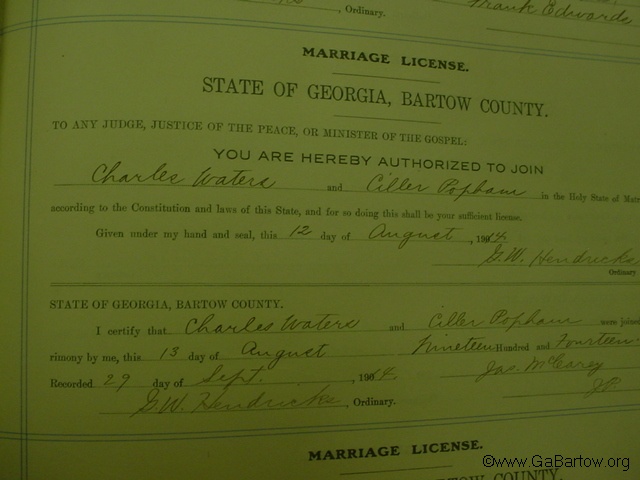 , Ordinary.
Frank Edwards
MARRIAGE LICENSE.
STATE OF GEORGIA, BARTOW COUNTY.
TO ANY JUDGE, JUSTICE OF THE PEACE, OR MINISTER OF THE GOSPEL:
YOU ARE HEREBY AUTHORIZED TO JOIN
Charles Waters and Ciller Popham in the Holy State of Matr
according to the Constitution and laws of this State, and for so doing this shall be your sufficient license.
Given under my hand and seal, this 12 day of August , 1914.
G.W. Hendricks
Ordinary
STATE OF GEORGIA, BARTOW COUNTY.
I certify that Charles Waters and Ciller Popham were joined
rimony by me, this 13 day of August Nineteen Hundred and Fourteen
Recorded 29 day of Sept. , 1914. Jas. McCarey
G.W. Hendricks, Ordinary. JP
MARRIAGE LICENSE.
COUNTY.
©www.GaBartow.org